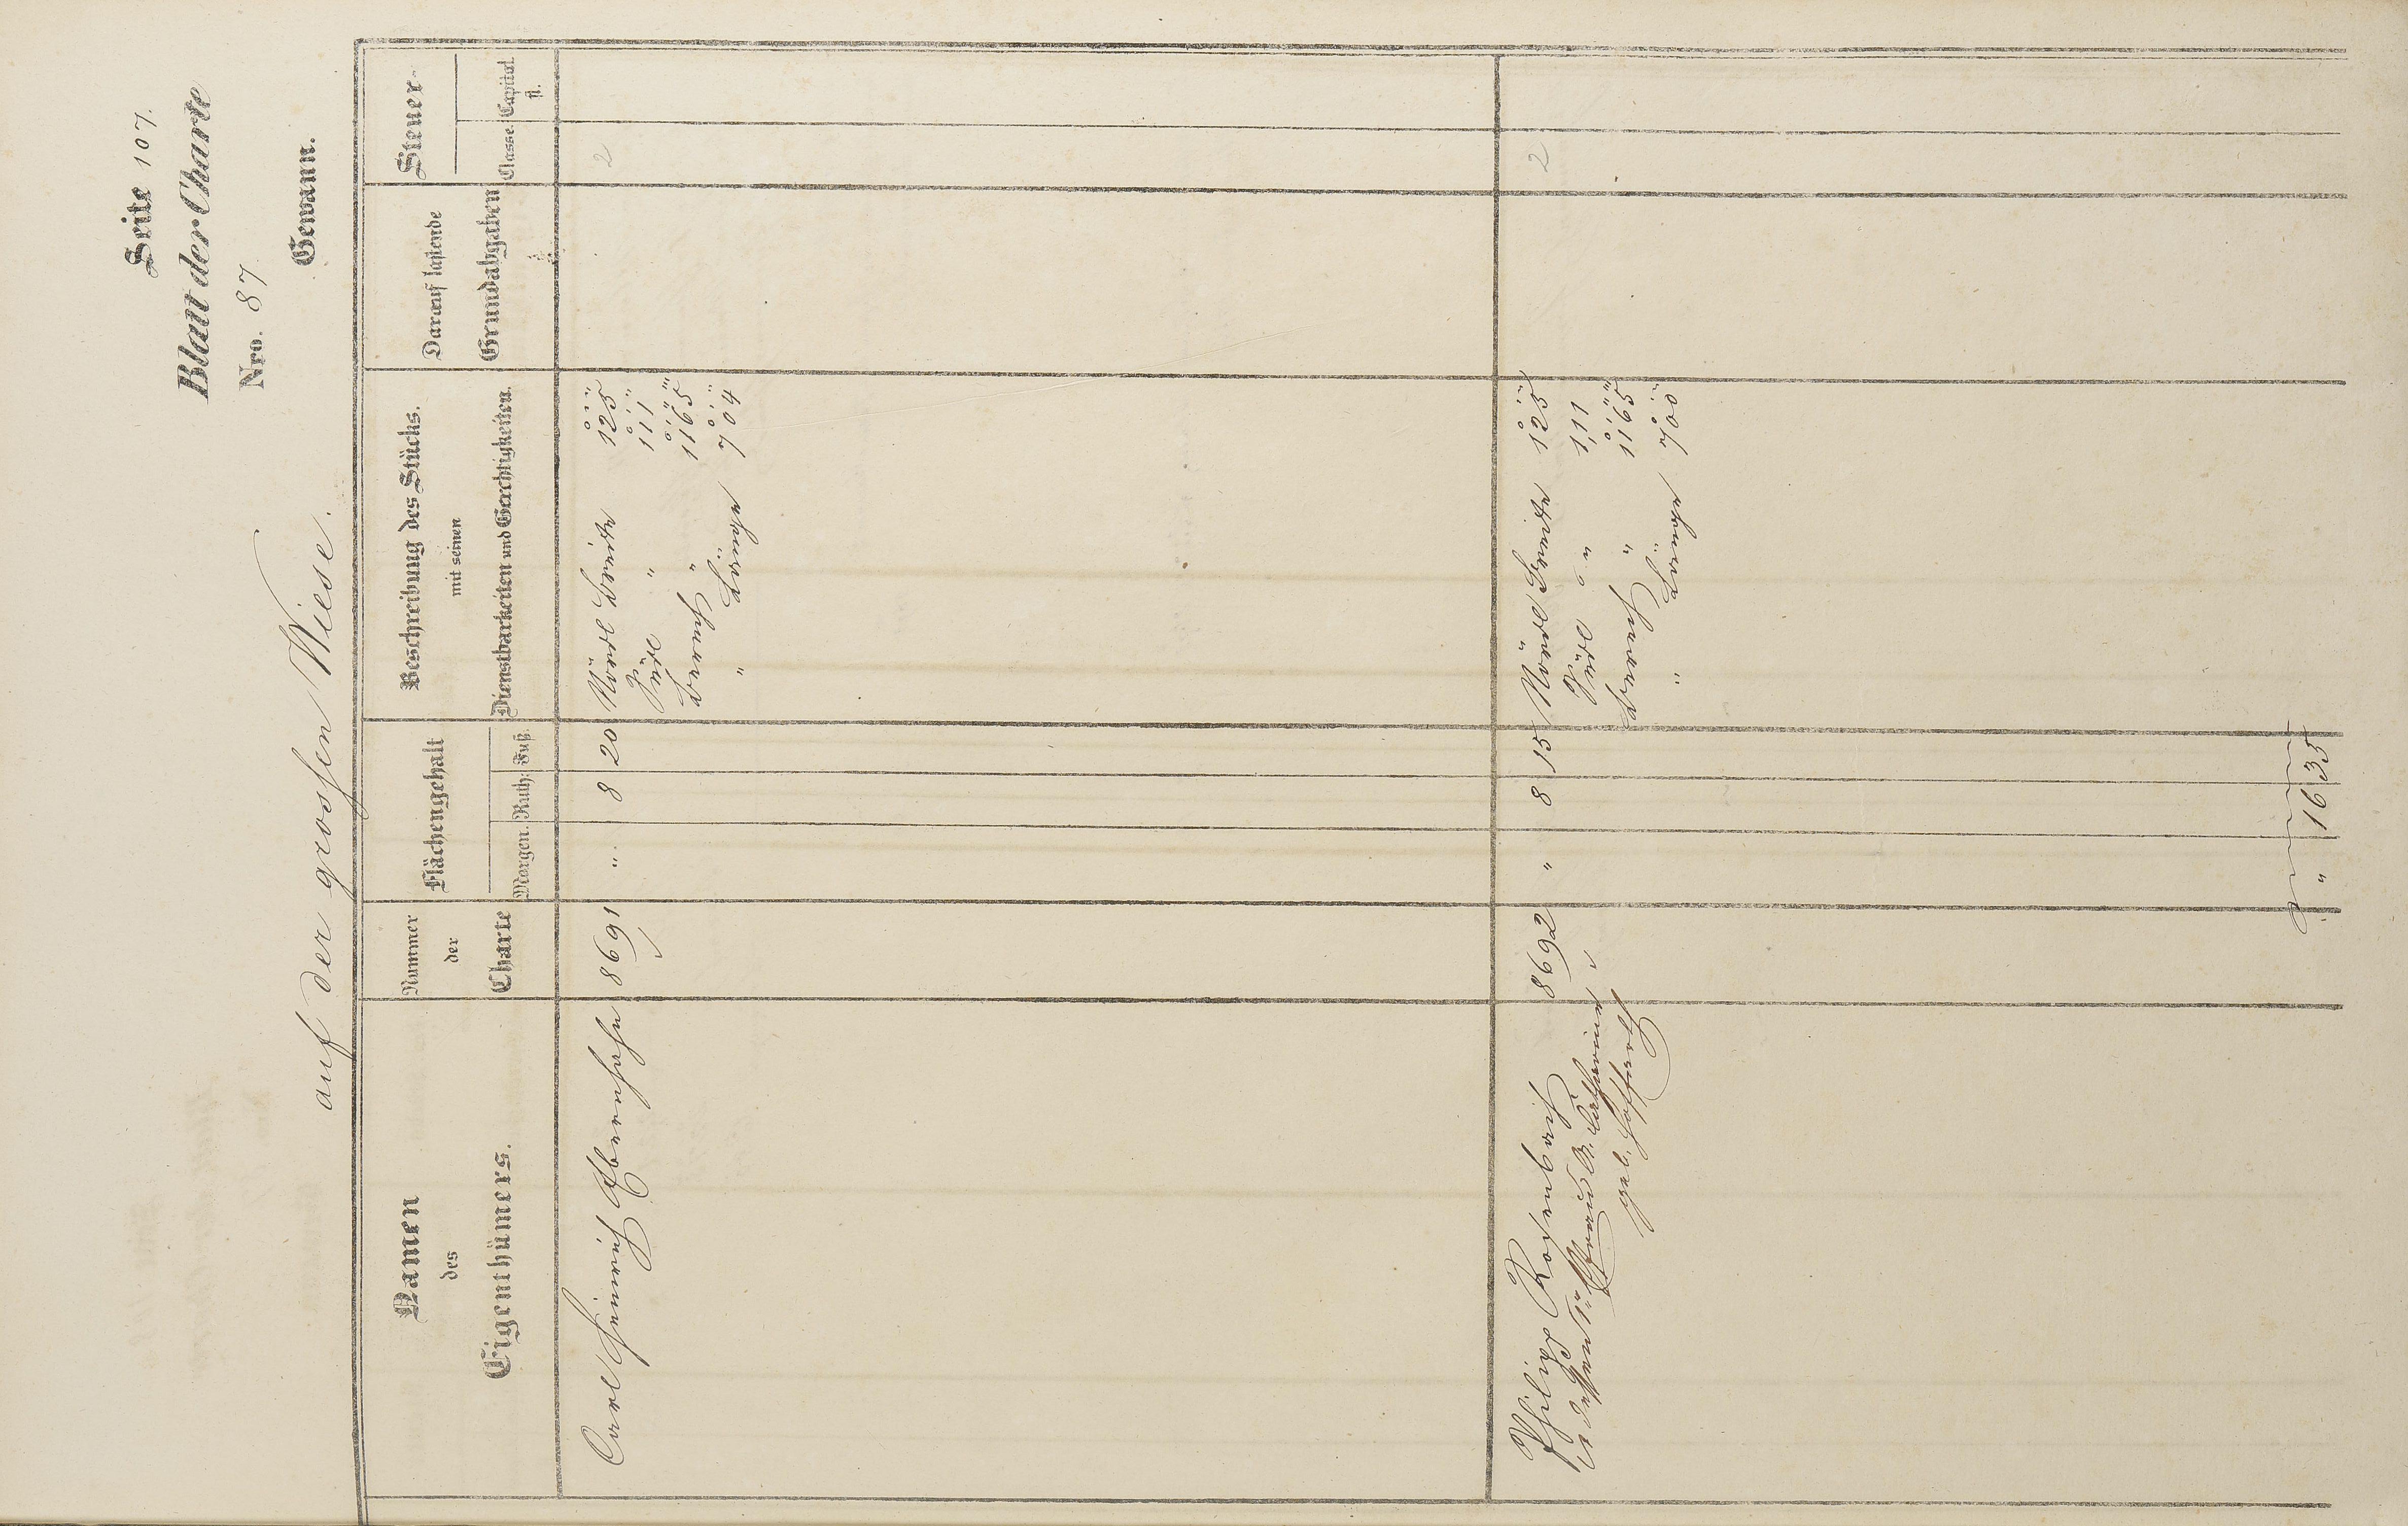 Seite 107.
Blatt der Charte
Nro. 87
Gewann.
auf der grossen Wiese.
Namen des Eigenthümers.
Nummer der Charte
Flächengehalt
Morgen. Ruth: Fuß.
Beschreibung des Stücks.
mit seinen
Dienstbarkeiten und Gerechtigkeiten.
Darauf haftende
Grundabgaben
Steuer-
Classe. Capital.
fl.
Carl Heinrich Ebernhahn 8691 " 8 20 Nördl Breite 1°2'5" 2
Südl " 1°1'1"
Senkr " 1°1'6"5'''
" Länge 7°0'4"
Philipp Rosenbach 8692 " 8 15 Nördl Breite 1°2'5" 2
Südl " 1,11
Senkr " 1°1'6"5'''
" Länge 7°0'0"
geb.
" 16 35